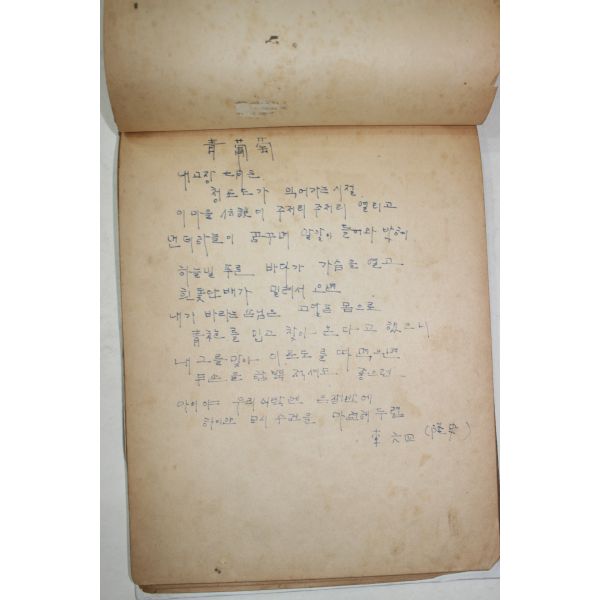 靑葡萄
내고장 七月은
청포도가 익어가는 시절
이마을 傳說이 주저리 주저리 열리고
먼데하늘이 꿈꾸며 알알이 들어와 박혀
하늘밑 푸른 바다가 가슴을 열고
흰돛단배가 밀려서 오면
내가 바라는 손님은 고달픈 몸으로
靑袍를 입고 찾아 온다고 했으니
내 그를맞아 이포도를 따 먹으면
두손을 함뿍 적셔도 좋으련
아이야 우리식탁엔 은쟁반에
하이얀 모시 수건을 마련해 두렴
李 六四